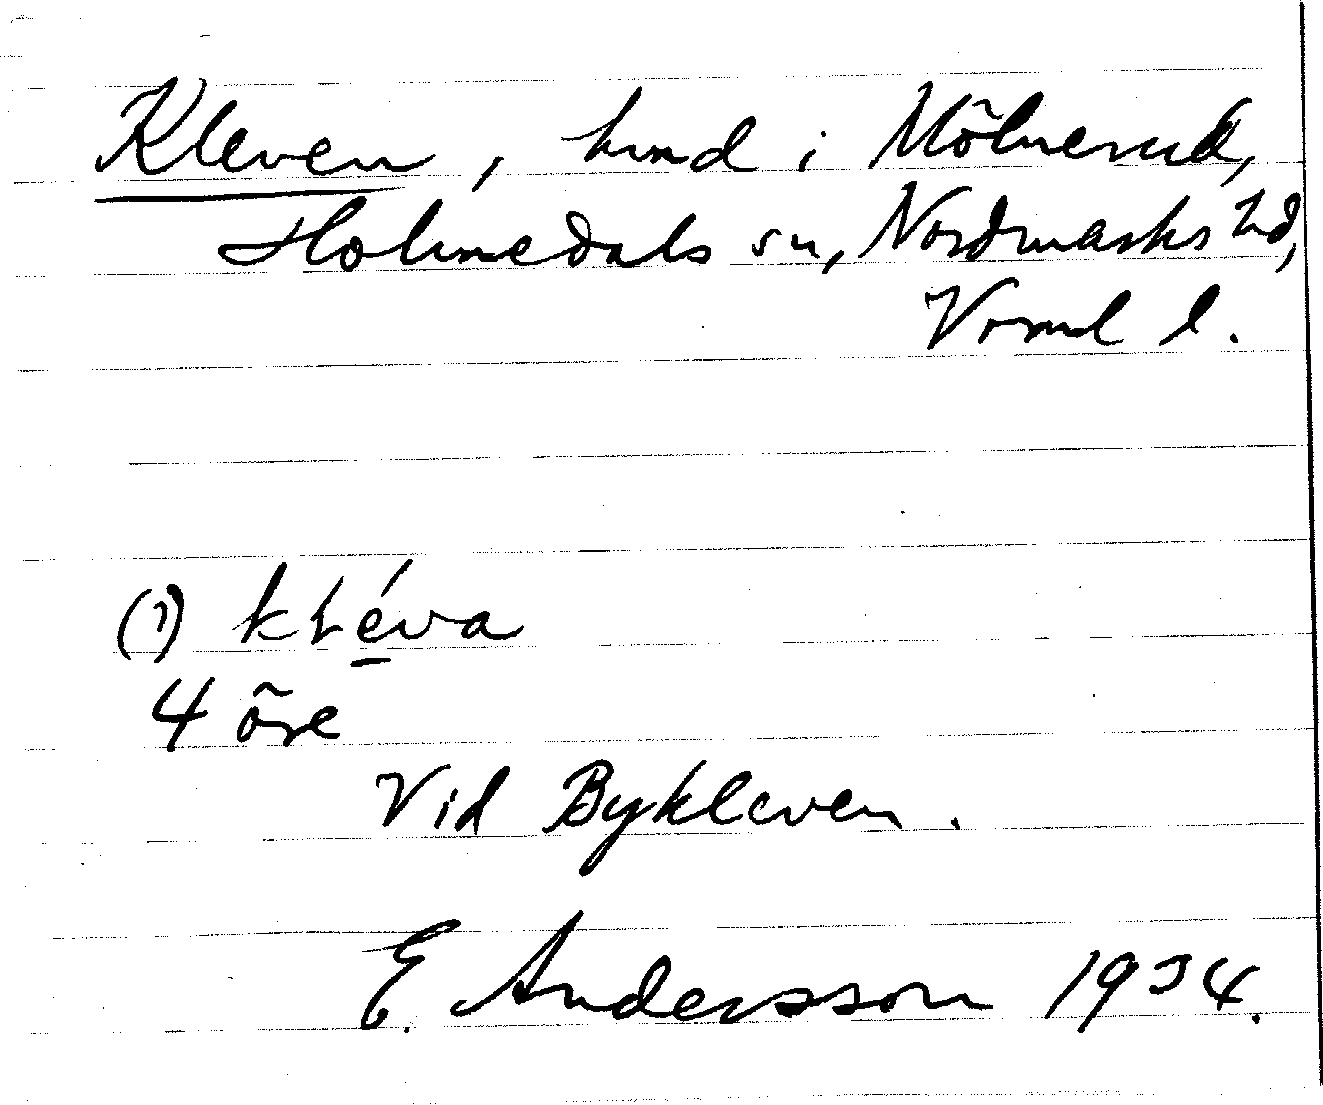 Kleven, hmd i Mölnerud,
Holmedals sn, Nordmarks hd,
Vrml l.
(1) kLéva
4 öre
Vid Bykleven.
E. Andersson 1934.